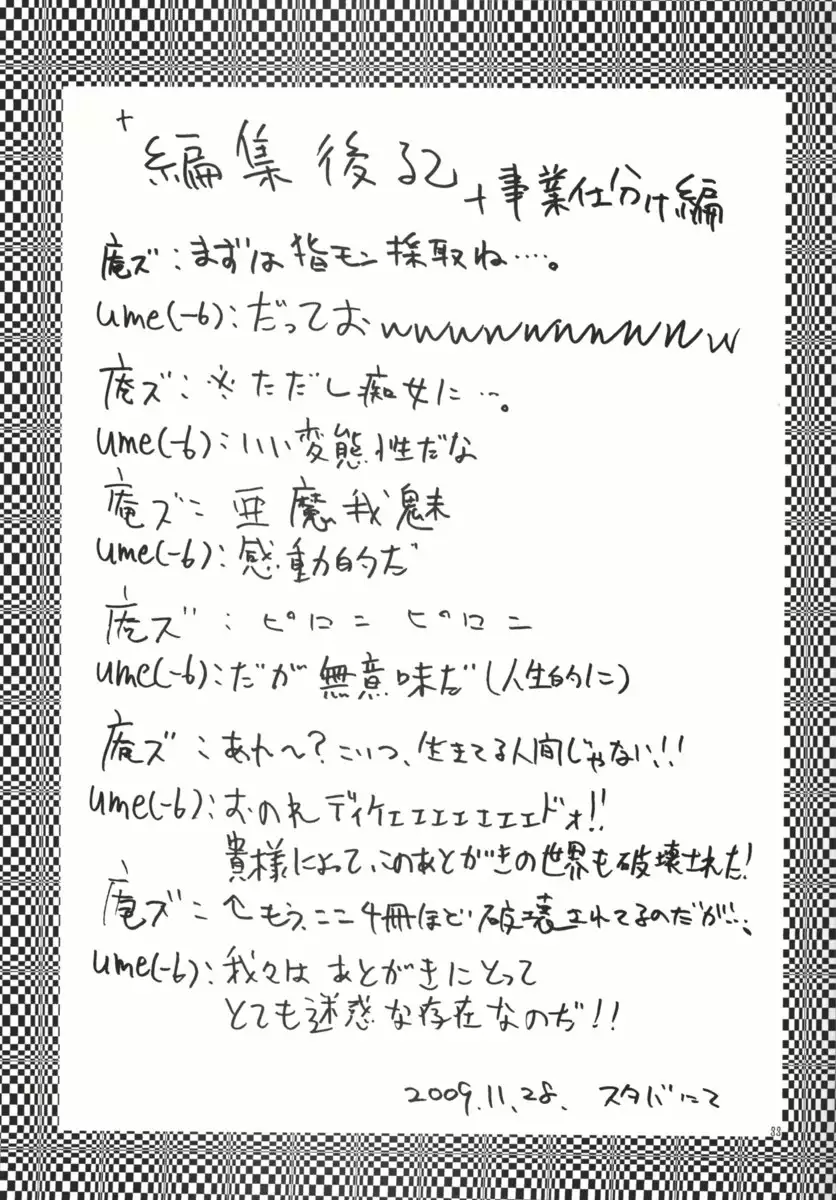 +編集後記+事業仕分け編
庵ズ:まずは指モン採取ね…。
ume(-6):だっておwwwwwwwwwww
庵ズ:※ただし痴女に…。
ume(-6):いい変態性だな
庵ズ:亜魔我魅
ume(-6):感動的だ
庵ズ:ピロニ ピロニ
ume(-6):だが無意味だ(人生的に)
庵ズ:あれ〜?こいつ、生きてる人間じゃない!!
ume(-6):おのれディケェェェェェェドォ!!
貴様によって、このあとがきの世界も破壊された!
庵ズ:↑もう、ここ4冊ほど破壊されてるのだが…。
ume(-6):我々はあとがきにとって
とても迷惑な存在なのぢ!!
2009.11.28. スタバにて
33